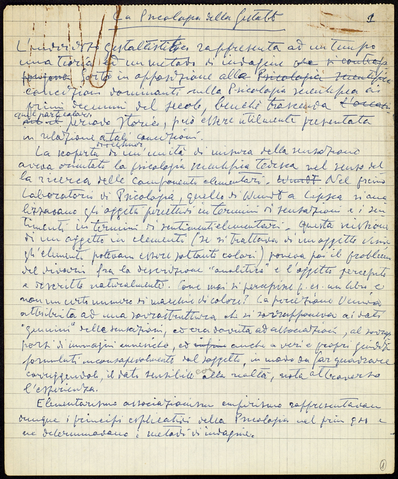 La Psicologia della Gestalt
1
L'indirizzo gestaltistico rappresenta ad un tempo
una teoria ed un metodo di indagine
sorto in opposizione alla Psicologia scientifica
concezioni dominanti nella Psicologia scientifica ai
primi decenni del secolo, benché trascenda
quel particolare periodo storico, può essere utilmente presentata
in relazione a tali concezioni.
La scoperta di un'unità di misura della sensazione
aveva orientato la psicologia scientifica tedesca nel senso del
la ricerca delle componenti elementari. Wundt Nel primo
Laboratorio di Psicologia, quello di Wundt a Lipsia si ana
lizzavano gli oggetti percettivi in termini di sensazioni e i sen
timenti in termini di sentimenti elementari. Questa visione
di un oggetto in elementi (se si trattava di un oggetto visivo
gli elementi potevano essere soltanto colori) poneva poi il problema
del divario fra la descrizione "analitica" e l'oggetto percepito
e descritto naturalmente. Come mai si percepisce p. es. un libro e
non un certo numero di macchie di colore? La percezione veniva
attribuita ad una sovrastruttura che si sovrapponeva ai dati
"genuini" delle sensazioni, ed era dovuta ad associazioni, al sovrap
porsi di immagini mnestiche, ed anche a veri e propri giudizi
formulati inconsapevolmente dal soggetto, in modo da far quadrare
correggendoli, il dato sensibile colla realtà, nota attraverso
l'esperienza.
Elementarismo associazionismo empirismo rappresentavano
dunque i principi esplicativi della Psicologia nel primi 900 e
ne determinavano i metodi di indagine.
1